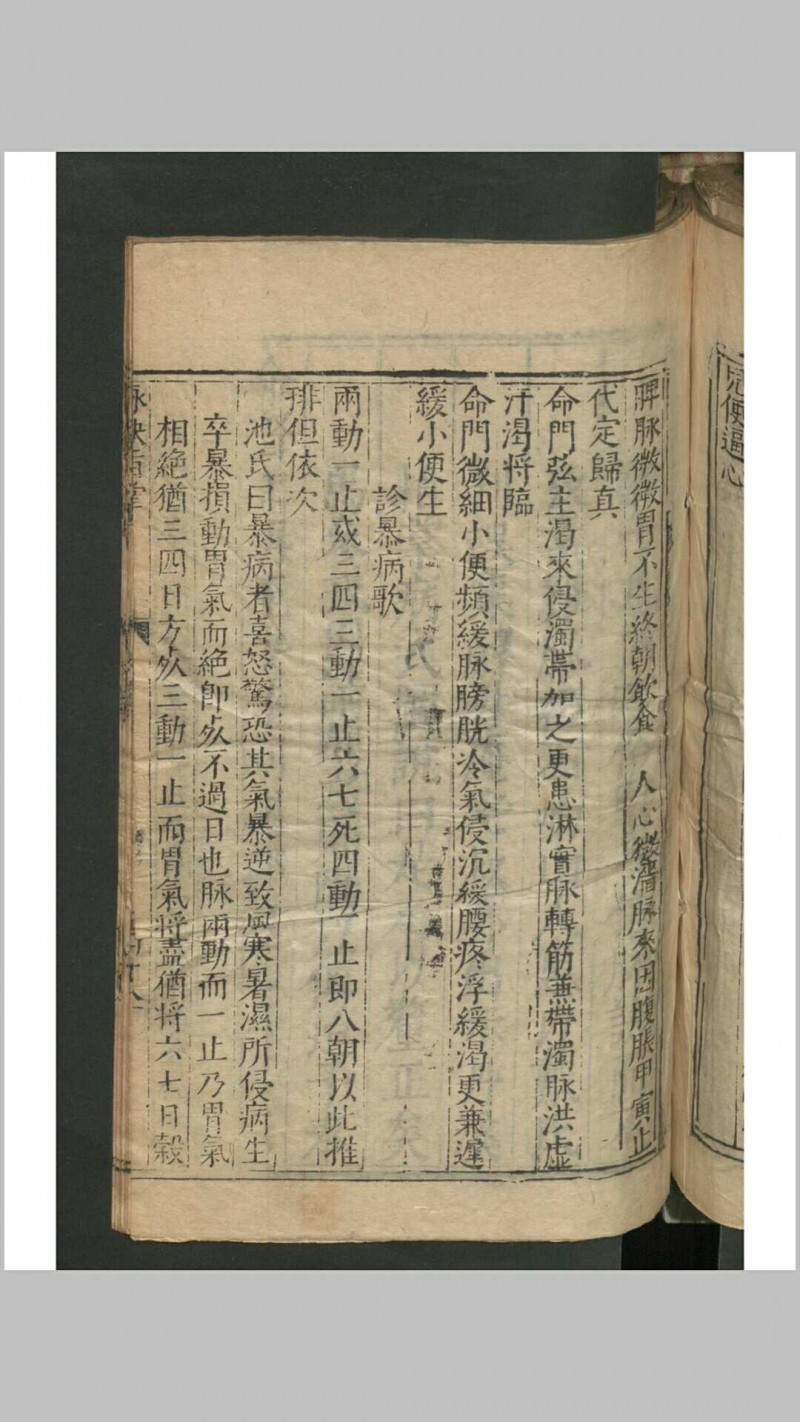 兒便逼心
脾脉微微胃不生終朝飲食 人心微濇脉來因腹脹甲寅止
代定歸真
命門弦主渴來侵濁帶加之更患淋實脉轉筋兼帶濁脉洪虚
汗渴將臨
命門微細小便頻緩脉膀胱冷氣侵沉緩腰疼浮緩渴更兼遲
緩小便生
診暴病歌
兩動一止或三四三動一止六七死四動一止即八朝以此推
排但依次
池氏曰暴病者喜怒驚恐其氣暴逆致風寒暑濕所侵病生
卒暴損動胃氣而絶即死不過日也脉兩動而一止乃胃氣
相絶猶三四日方死三動一止而胃氣將盡猶將六七日穀
脉訣指掌